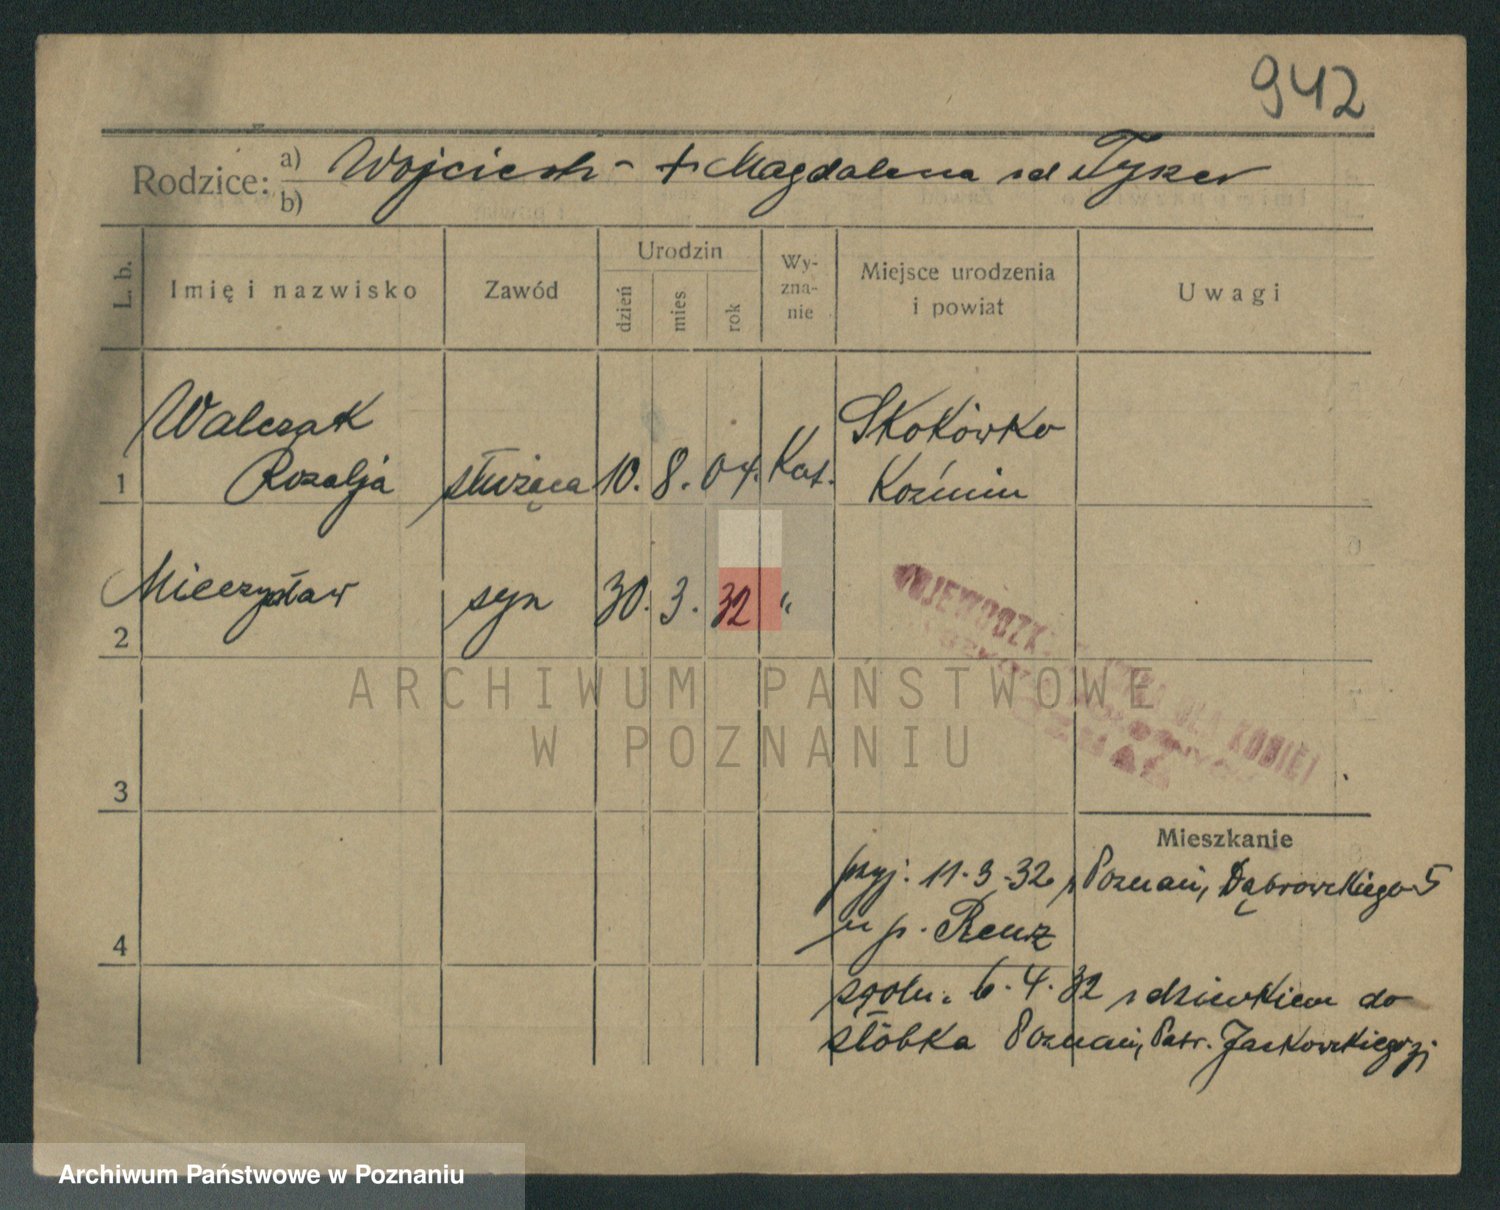 942
Rodzice: a) Wojciech - + Magdalena z d Tyker
b)
L. b.
Imię i nazwisko
Zawód
Urodzin
dzień
mies
rok
Wy-
zna-
nie
Miejsce urodzenia
i powiat
Uwagi
Walczak
Rozalja
1
służąca
10. 8. 04.
Kat.
Skokówko
Koźmin
2
Mieczysław
syn
30. 3. 32
"
WOJEWÓDZK DLA KOBIET
ARCHIWUM PAŃSTWOWE
W POZNANIU
3
Mieszkanie
przyj. 11.3.32. z Poznań, Dąbrowskiego 5
u p. Renz
4
6.4.32 z dzieckiem do
żłóbka Poznań, Patr. Jackowskiego
Archiwum Państwowe w Poznaniu